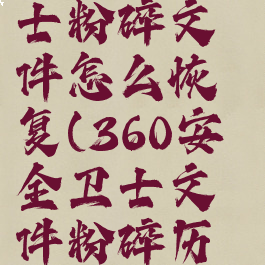 士粉碎文
件怎么恢
复(360安
全卫士文
件粉碎历